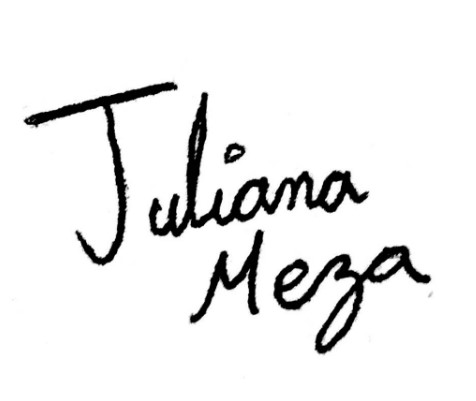 Juliana
Meza